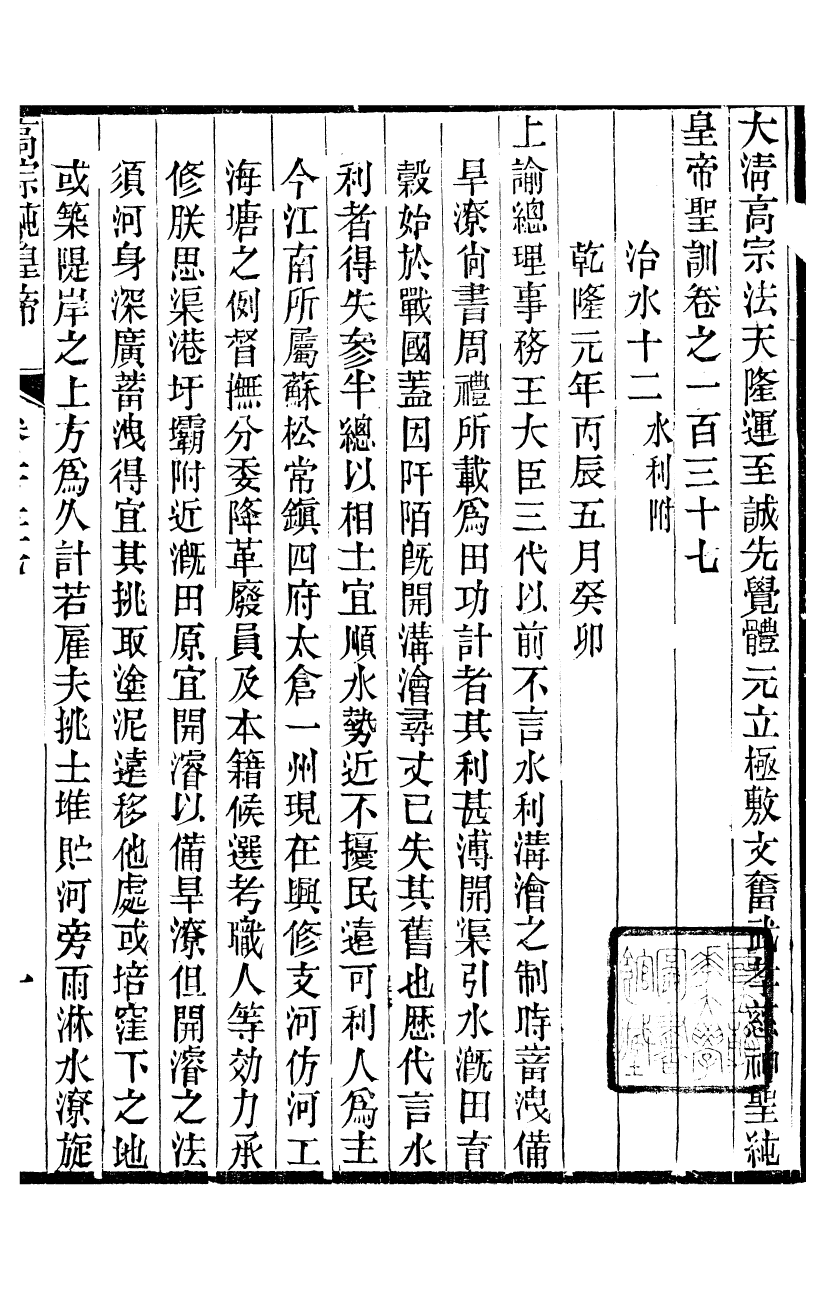 大清高宗法天隆運至誠先覺體元立極敷文奮武孝慈神聖純
皇帝聖訓卷之一百三十七
治水十二 水利附
乾隆元年丙辰五月癸卯
上諭總理事務王大臣三代以前不言水利溝澮之制時蓄洩備
旱潦尙書周禮所載爲田功計者其利甚溥開渠引水漑田育
穀始於戰國蓋因阡陌旣開溝澮尋丈已失其舊也歷代言水
利者得失參半總以相土宜順水勢近不擾民遠可利人爲主
今江南所屬蘇松常鎮四府太倉一州現在興修支河仿河工
海塘之例督撫分委降革廢員及本籍候選考職人等効力承
修朕思渠港圩壩附近漑田原宜開濬以備旱潦但開濬之法
須河身深廣蓄洩得宜其挑取塗泥遠移他處或培窪下之地
或築隄岸之上方爲久計若雇夫挑土堆貯河旁雨淋水潦旋
高宗純皇帝
一